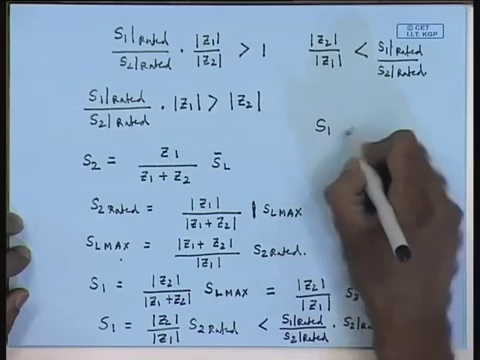 S1|Rated / S2|Rated · |Z1| / |Z2| > 1   |Z2| / |Z1| < S1|Rated / S2|Rated.
© CET I.I.T. KGP
S1|Rated / S2|Rated · |Z1| > |Z2|
S1
S2 = Z1 / Z1 + Z2 S̄L
S2 Rated = |Z1| / |Z1 + Z2| | SLMAX
SLMAX = |Z1 + Z2| / |Z1| S2 Rated.
S1 = |Z2| / |Z1 + Z2| SLMAX = |Z2| / |Z1| S2
S1 = |Z2| / |Z1| S2 Rated < S1|Rated / S2|Rated ·